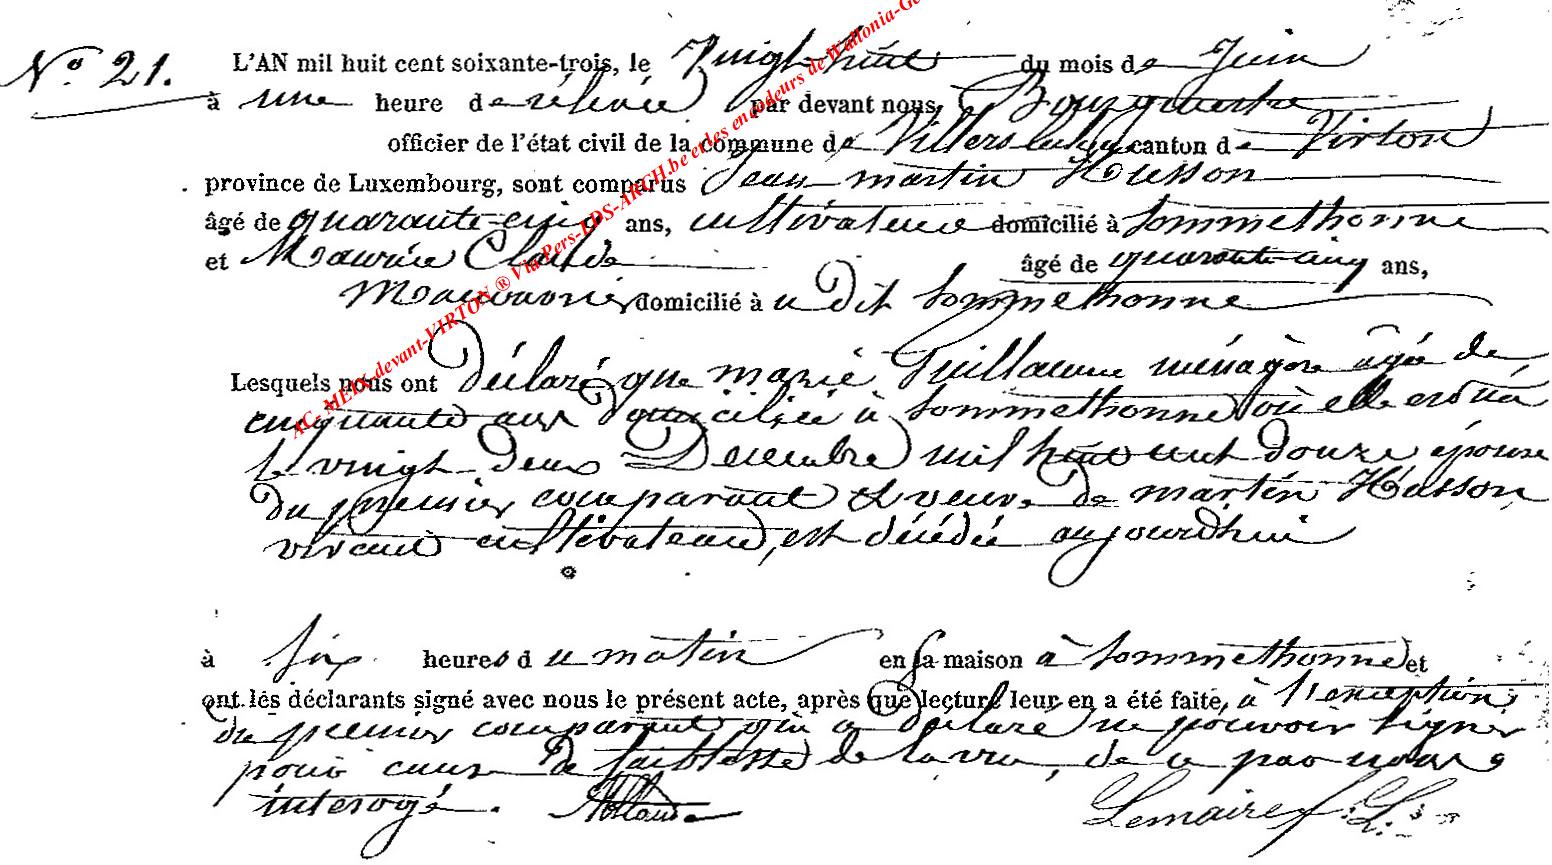 N° 21.
L'AN mil huit cent soixante-trois, le Vingt-huit du mois de Juin
à une heure de rélevée par devant nous, Bourgmestre
officier de l'état civil de la commune de Villers canton de Virton
province de Luxembourg, sont comparus Jean martin Husson
âgé de quarante-cinq ans, cultivateur domicilié à Sommethonne
et Maurice Claude âgé de quarante-cinq ans,
domicilié à u dit Sommethonne
Lesquels nous ont Déclaré que marie Guillaume ménagère âgée de
cinquante ans Domiciliée à Sommethonne où elle est née
le vingt-deux Decembre mil huit cent douze épouse
du premier comparant & veuve de martin Husson,
vivant cultivateur, est décédée aujourdhui
à six heures du matin en sa maison à Sommethonne et
ont les déclarants signé avec nous le présent acte, après que lecture leur en a été faite, à l'exception
du premier comparant qui a déclaré ne pouvoir signer
pour cause de faiblesse de la vue, de ce par nous
interogé. Lemaire f: L:
AC- MEIX-devant-VIRTON ® Via Pers-LDS-ARCH.be et les encodeurs de Wallonia-Ge